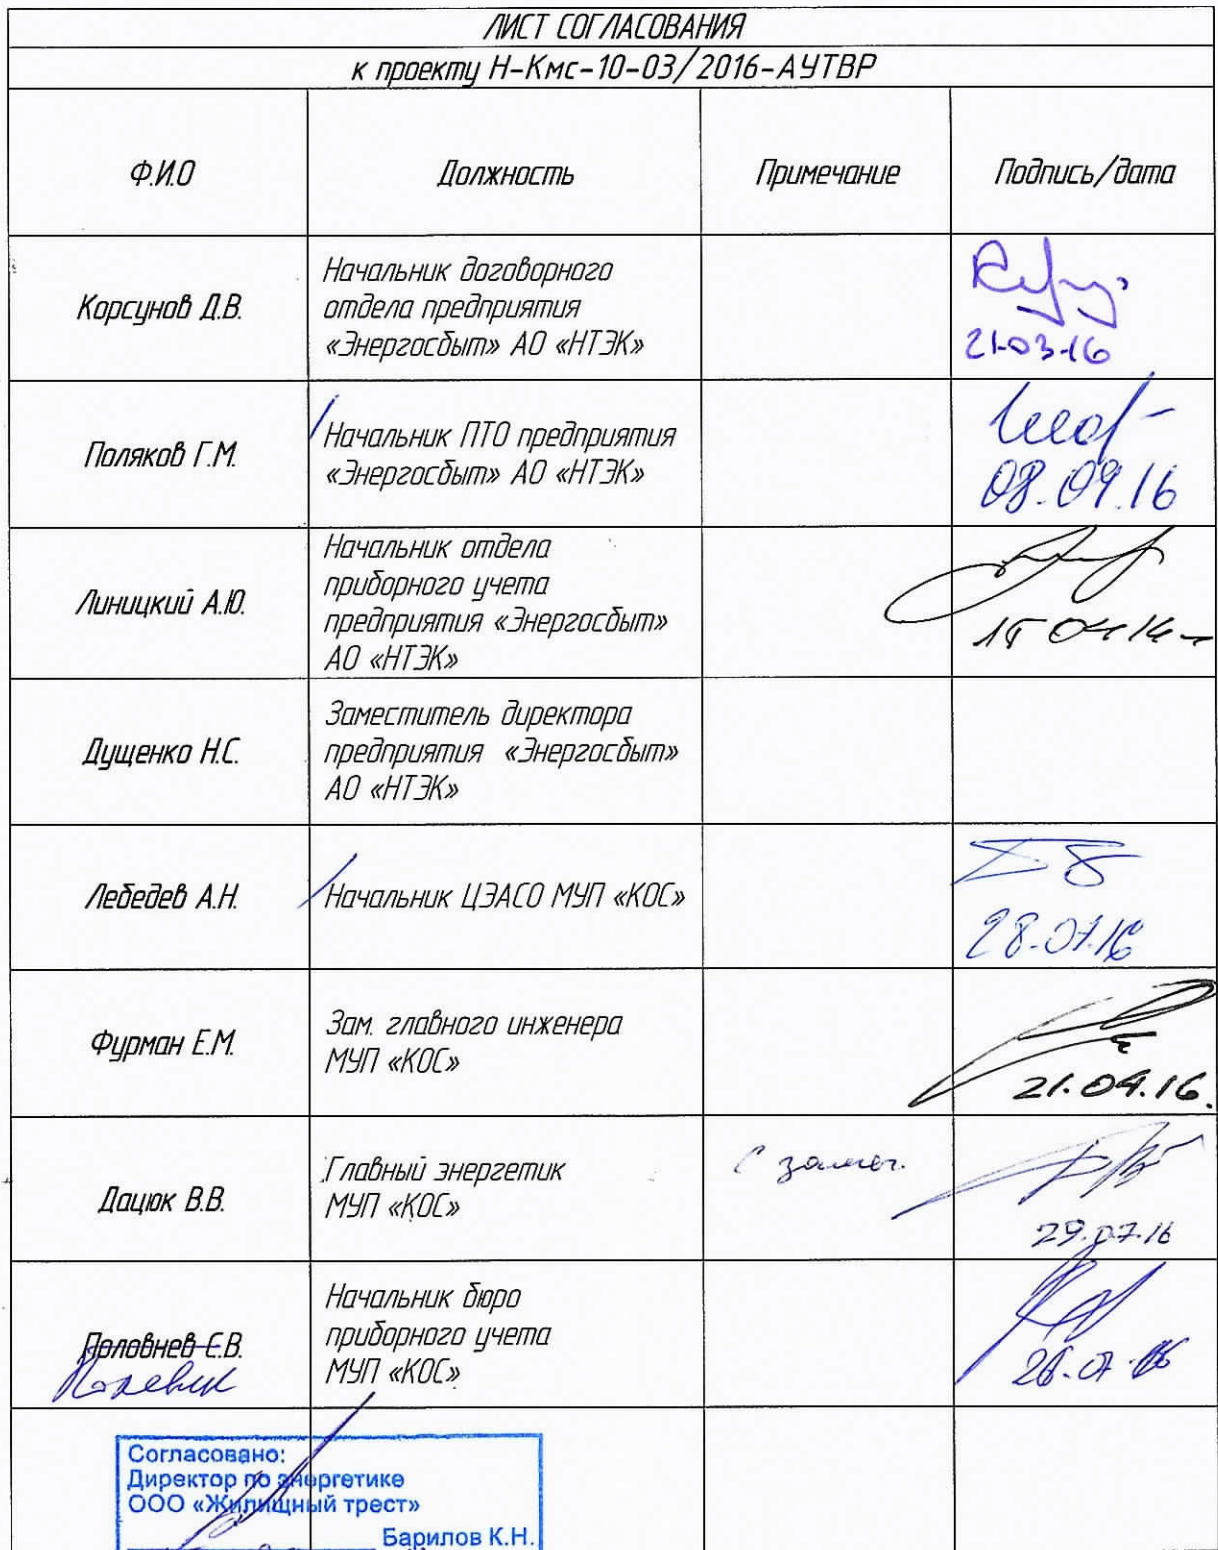 ЛИСТ СОГЛАСОВАНИЯ
к проекту Н-Кмс-10-03/2016-АУТВР
Ф.И.О
Должность
Примечание
Подпись/дата
Корсунов Д.В.
Начальник договорного
отдела предприятия
«Энергосбыт» АО «НТЭК»
21-03-16
Поляков Г.М.
Начальник ПТО предприятия
«Энергосбыт» АО «НТЭК»
08.09.16
Линицкий А.Ю.
Начальник отдела
приборного учета
предприятия «Энергосбыт»
АО «НТЭК»
Дущенко Н.С.
Заместитель директора
предприятия «Энергосбыт»
АО «НТЭК»
Лебедев А.Н.
Начальник ЦЭАСО МУП «КОС»
28.07.16
Фурман Е.М.
Зам. главного инженера
МУП «КОС»
21.09.16.
Дацюк В.В.
Главный энергетик
МУП «КОС»
с замеч.
29.07.16
Половнев Е.В.
Начальник бюро
приборного учета
МУП «КОС»
Согласовано:
Директор по энергетике
ООО «Жилищный трест»
Барилов К.Н.